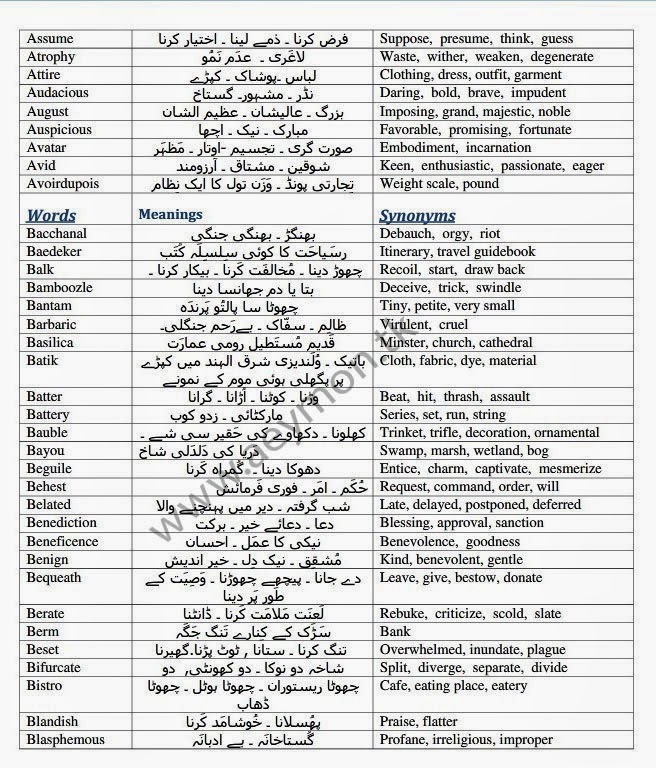 Assume فرض کرنا ۔ ذمے لینا ۔ اختیار کرنا Suppose, presume, think, guess
Atrophy لاغَری ۔ عدَم نَمُو Waste, wither, weaken, degenerate
Attire لباس ۔پوشاک ۔ کپڑے Clothing, dress, outfit, garment
Audacious نڈر ۔ مشہور۔ گستاخ Daring, bold, brave, impudent
August بزرگ ۔ عالیشان ۔ عظیم الشان Imposing, grand, majestic, noble
Auspicious مبارک ۔ نیک ۔ اچھا Favorable, promising, fortunate
Avatar صورت گری ۔ تجسیم -اوتار ۔ مَظہَر Embodiment, incarnation
Avid شوقین ۔ مشتاق ۔ آرزومند Keen, enthusiastic, passionate, eager
Avoirdupois تِجارتی پونڈ ۔ وَزَن تول کا ایک نِظام Weight scale, pound
Words Meanings Synonyms
Bacchanal بھنگڑ ۔ بھنگی جنگی Debauch, orgy, riot
Baedeker رسَیاحَت کا کوئی سِلسِلَہ کُتَب Itinerary, travel guidebook
Balk چھوڑ دینا ۔ مُخالفَت کَرنا ۔ بیکار کرنا ۔ Recoil, start, draw back
Bamboozle بتا یا دم جھانسا دینا Deceive, trick, swindle
Bantam چھوٹا سا پالتُو پَرندَہ Tiny, petite, very small
Barbaric ظالِم ۔ سفّاک ۔ بےرَحم جنگلی۔ Virulent, cruel
Basilica قَدیم مُستَطیل رومی عمارَت Minster, church, cathedral
Batik باتیک ۔ وُلَندیزی شرق الہند میں کپڑے Cloth, fabric, dye, material
پر پگھلی ہوئی موم کے نمونے
Batter وڑنا ۔ کوٹنا ۔ اُڑانا ۔ گرانا Beat, hit, thrash, assault
Battery مارکٹائی ۔ زدو کوب Series, set, run, string
Bauble کھلونا ۔ دکھاوے کی حَقیر سی شے ۔ Trinket, trifle, decoration, ornamental
Bayou دریا کی دَلدَلی شاخ Swamp, marsh, wetland, bog
Beguile دھوکا دینا ۔ گُمراہ کَرنا Entice, charm, captivate, mesmerize
Behest حُکَم ۔ امَر ۔ فوری فَرمائش Request, command, order, will
Belated شب گرفتہ ۔ دیر میں پہنچنے والا Late, delayed, postponed, deferred
Benediction دعا ۔ دعائے خیر ۔ برکت Blessing, approval, sanction
Beneficence نیکی کا عمَل ۔ احسان Benevolence, goodness
Benign مُشفِق ۔ نیک دِل ۔ خیر اندیش Kind, benevolent, gentle
Bequeath دے جانا ۔ پیچھے چھوڑنا ۔ وَصِیَت کے Leave, give, bestow, donate
طَور پَر دینا
Berate لَعنَت مَلامَت کَرنا ۔ ڈانٹنا Rebuke, criticize, scold, slate
Berm سَڑَک کے کِنارے تَنگ جَگَہ Bank
Beset تنگ کرنا ۔ ستانا , ٹوٹ پڑنا.گھیرنا Overwhelmed, inundate, plague
Bifurcate شاخہ دو نوکا ۔ دو کھونٹی, دو Split, diverge, separate, divide
Bistro چھوٹا ریستوران ۔ چھوٹا ہوٹل ۔ چھوٹا Cafe, eating place, eatery
ڈھاب
Blandish پھُسلانا ۔ خُوشامَد کَرنا Praise, flatter
Blasphemous گُستاخانَہ ۔ بے ادبانَہ Profane, irreligious, improper
www.aeymon.tk